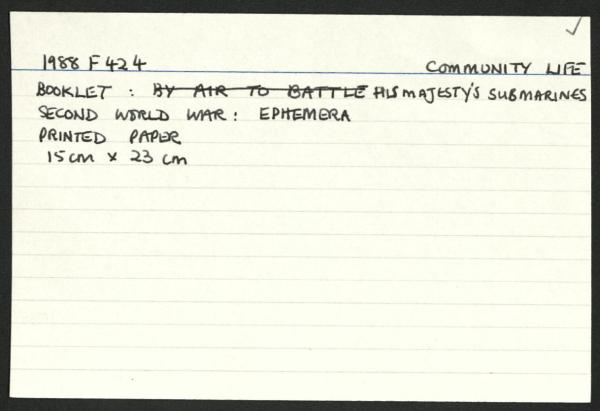 1988 F 424 COMMUNITY LIFE
BOOKLET : BY AIR TO BATTLE HIS MAJESTY'S SUBMARINES
SECOND WORLD WAR : EPHEMERA
PRINTED PAPER
15cm x 23 cm